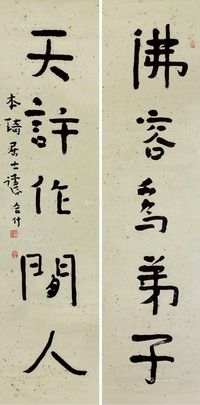 佛容為弟子
天許作閒人
本琦居士合什